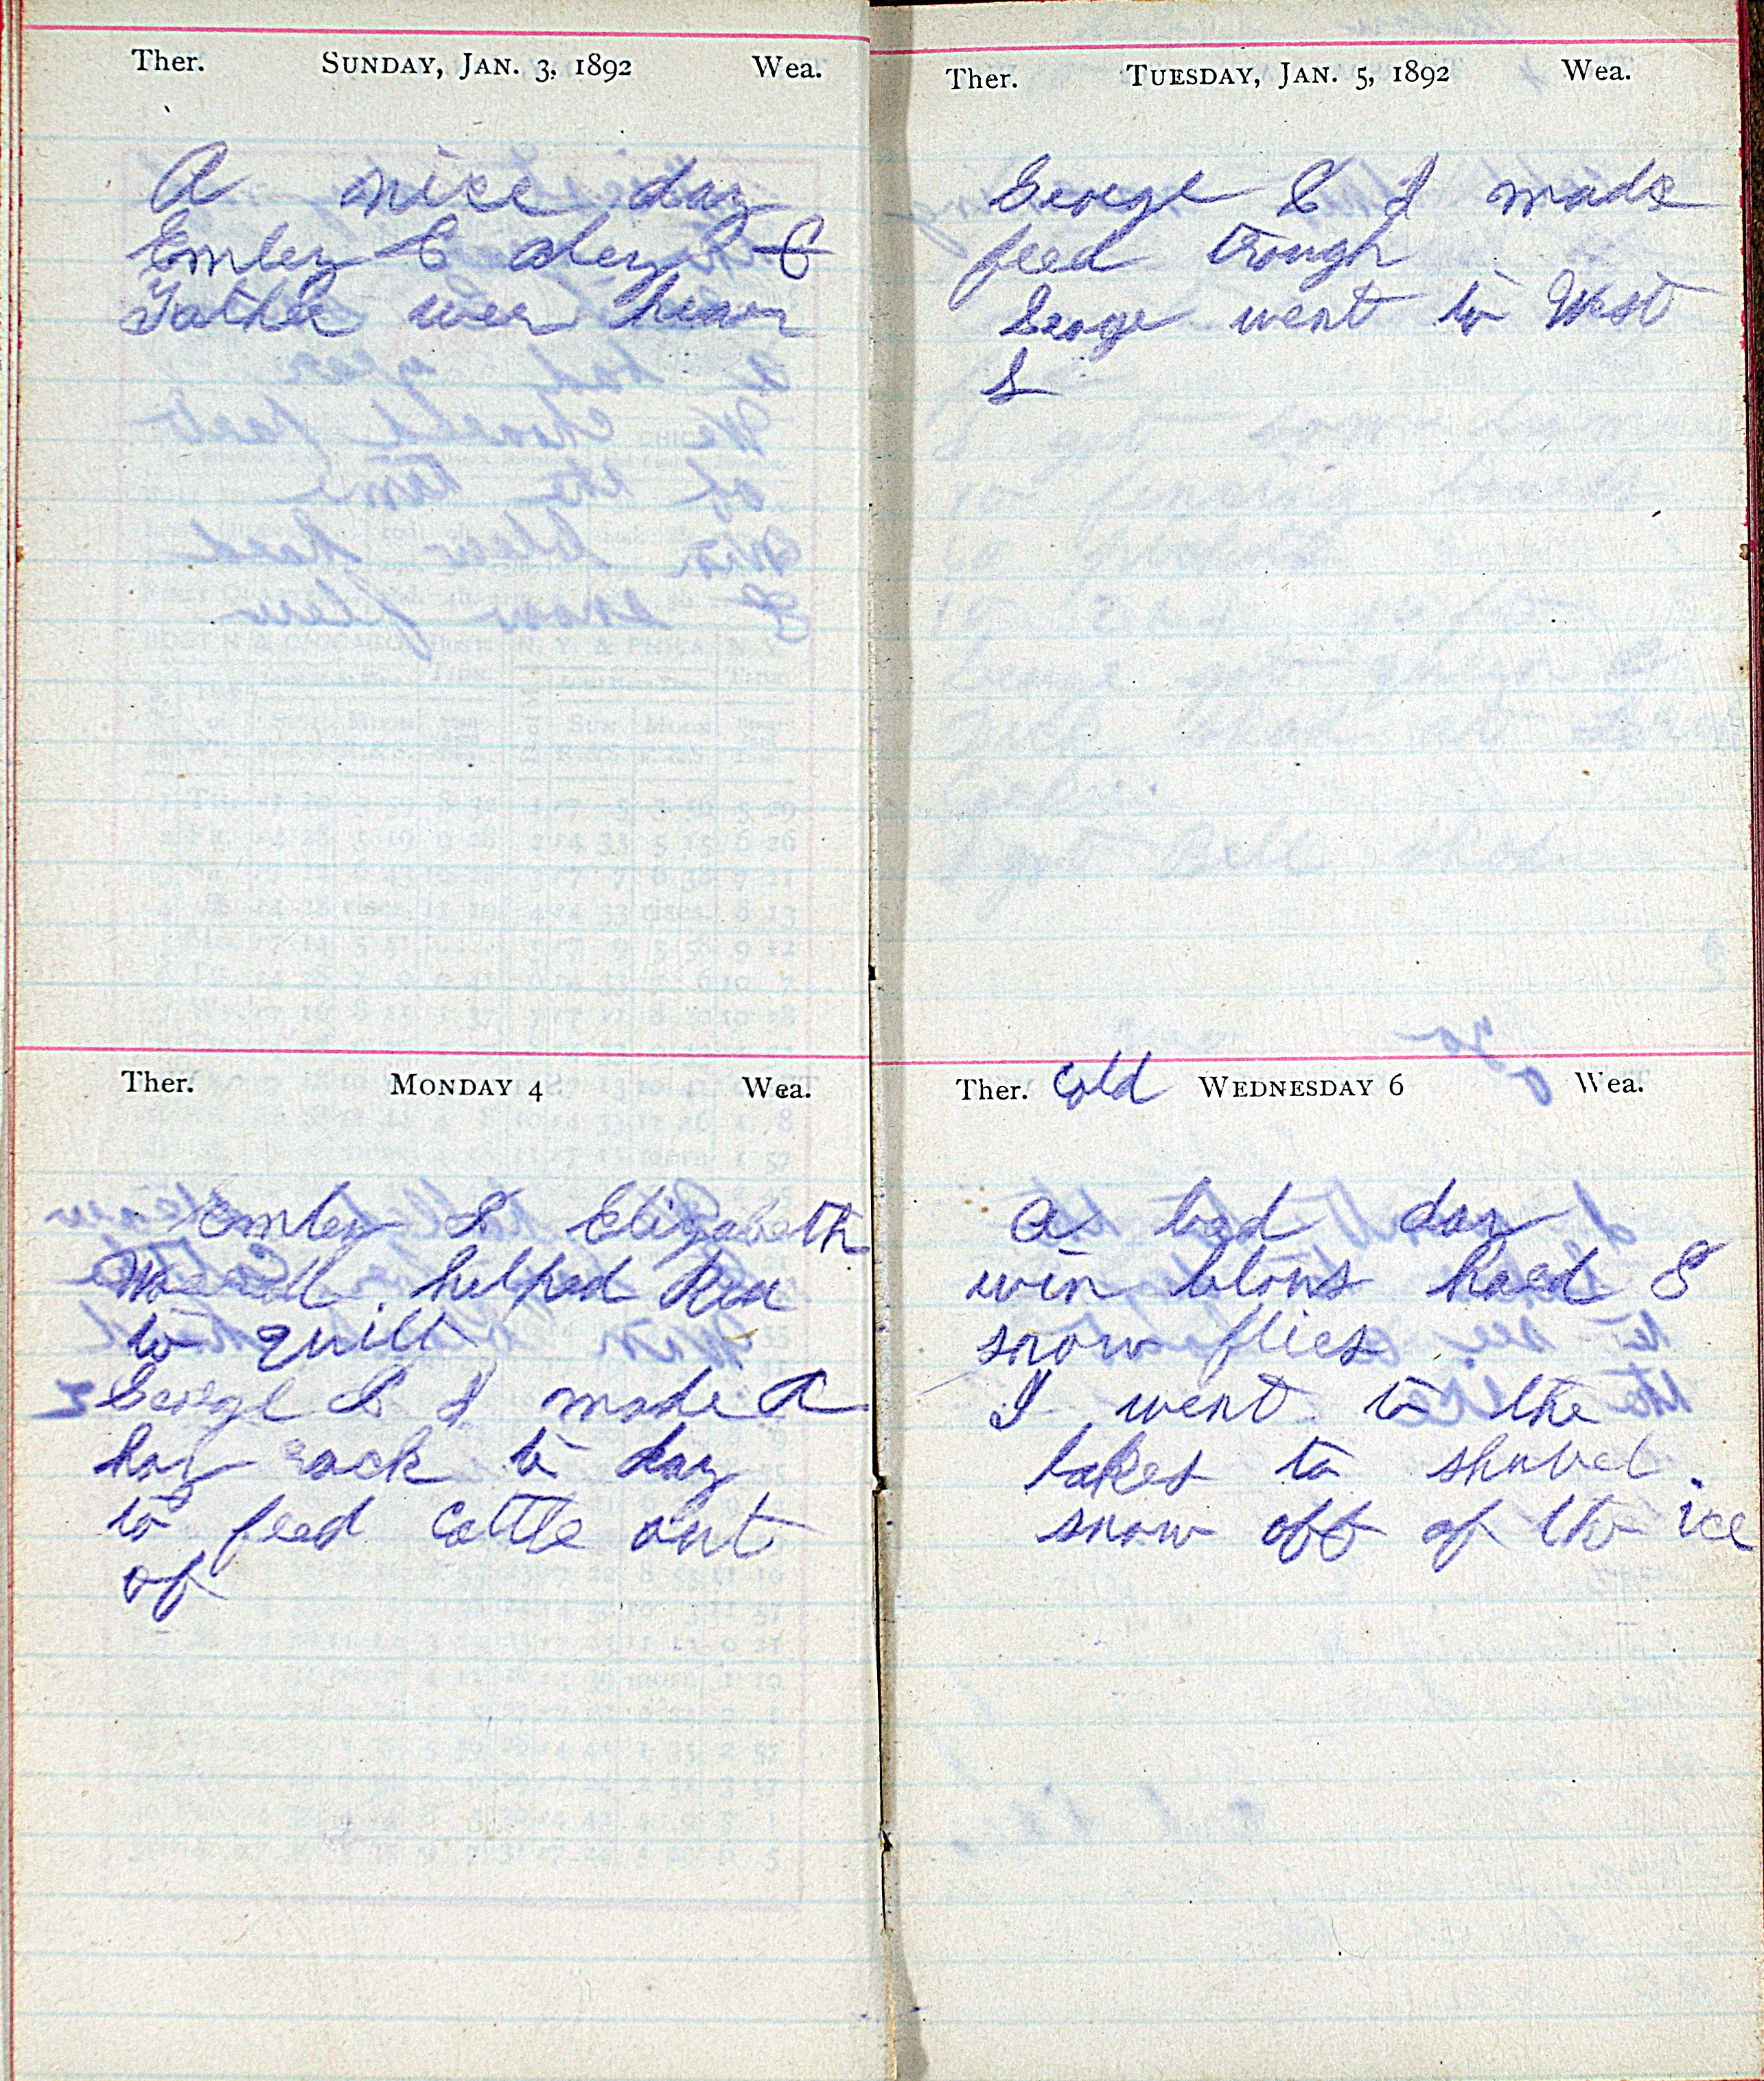 Ther. SUNDAY, JAN. 3, 1892 Wea.
A nice day
Emley & &
Father wer hear
Ther. MONDAY 4 Wea.
Emley & Elizabeth
helped
to quilt
George & I made a
hay rack to day
to feed cattle out
of
Ther. TUESDAY, JAN. 5, 1892 Wea.
George & I made
feed trough
George went to West
S
Ther. Cold WEDNESDAY 6 Wea.
A bad day
win blows hard &
snow flies
I went to the
lakes to shovel
snow off of the ice